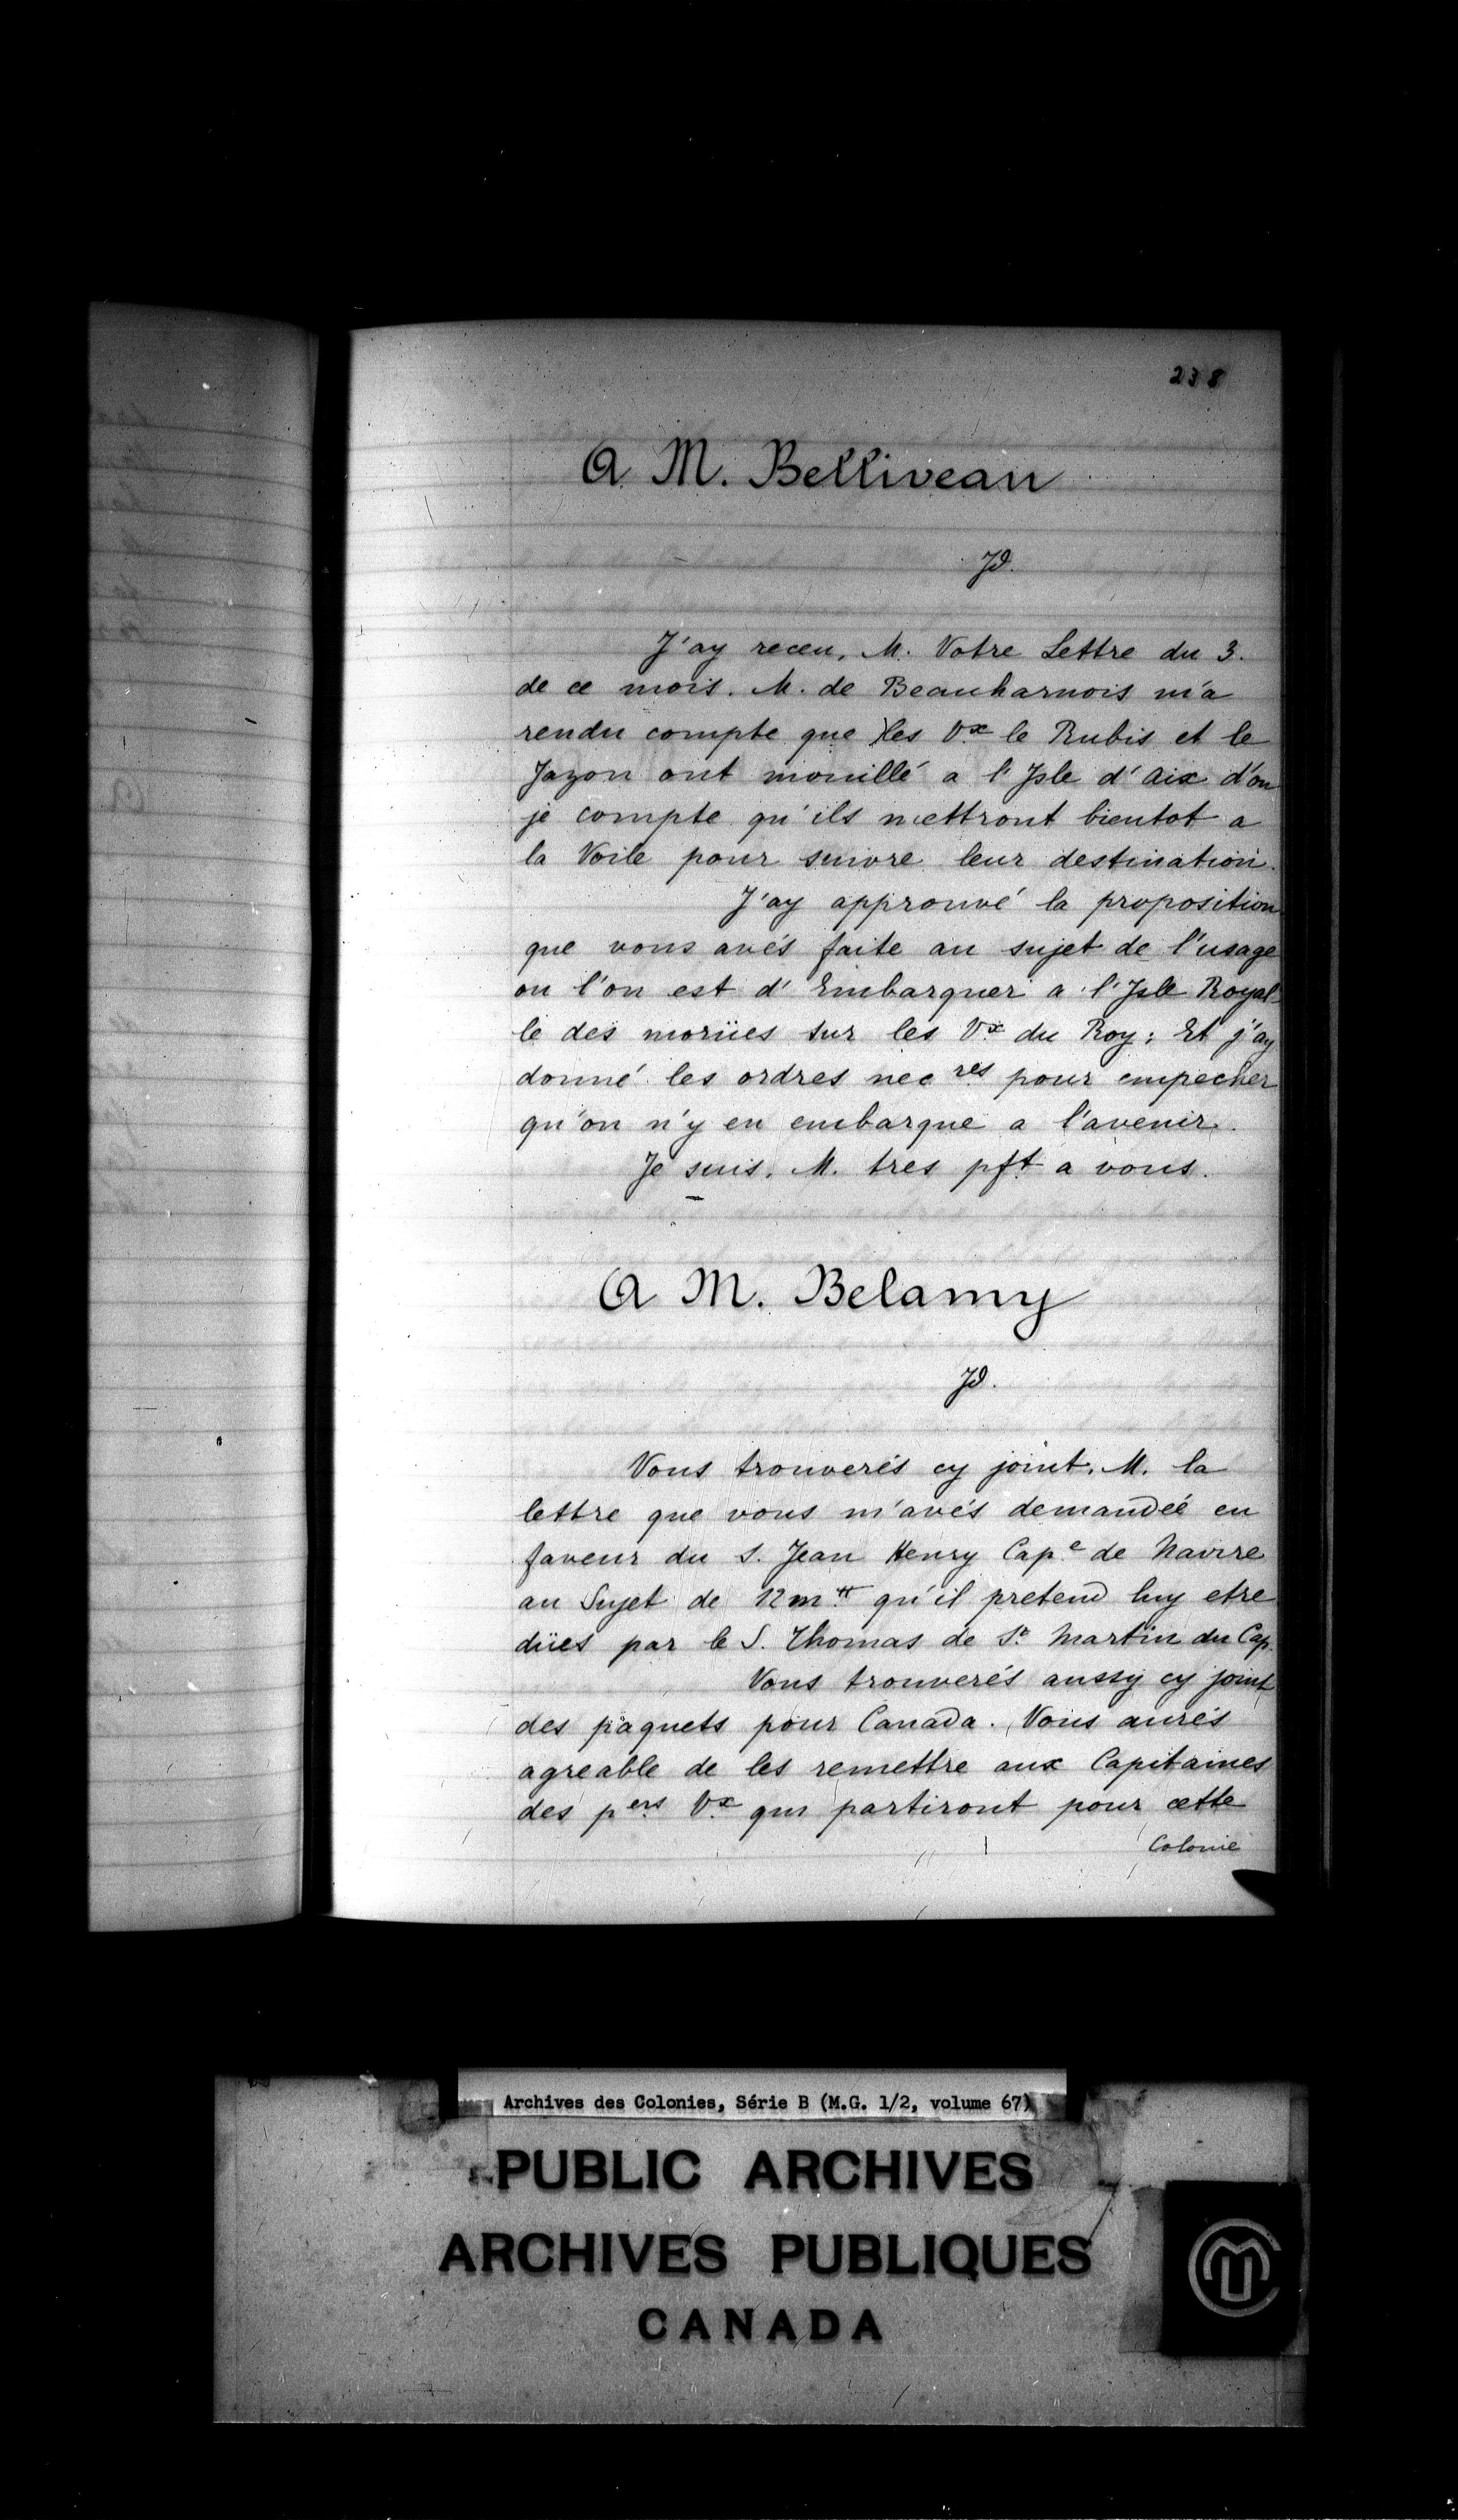 238
A M. Belliveau
Jd.
J'ay receu, M. Votre Lettre du 3.
de ce mois. M. de Beauharnois m'a
rendu compte que les Vx le Rubis et le
Jazon ont mouillé a l'Isle d'Aix d'ou
je compte qu'ils mettront bientot a
la Voile pour suivre leur destination.
J'ay approuvé la proposition
que vous avés faite au sujet de l'usage
ou l'on est d'Embarquer a l'Isle Royal-
le des moruës sur les Vx du Roy; Et j'ay
donné les ordres necres pour empecher
qu'on n'y en embarque a l'avenir.
Je suis, M. tres pft a vous.
A M. Belamy
Jd.
Vous trouverés cy joint, M. la
lettre que vous m'avés demandée en
faveur du S. Jean Henry Cape de Navire
au Sujet de 12m tt qu'il pretend luy etre
dües par le S. Thomas de St Martin du Cap.
Vous trouverés aussy cy joint
des paquets pour Canada. Vous aurés
agreable de les remettre aux Capitaines
des pers Vx qui partiront pour cette
Colonie
Archives des Colonies, Série B (M.G. 1/2, volume 67)
PUBLIC ARCHIVES
ARCHIVES PUBLIQUES
CANADA